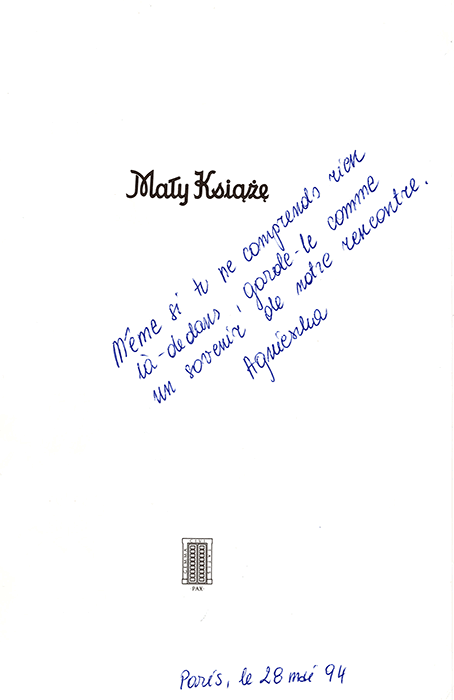 Mały Książę
Même si tu ne comprends rien
là-dedans, garde-le comme
un sovenir de notre rencontre.
Agnieszka
PAX
Paris, le 28 mai 94